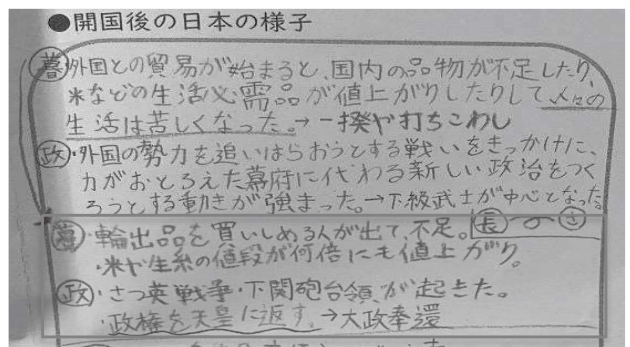 ●開国後の日本の様子
暮・外国との貿易が始まると、国内の品物が不足したり、
米などの生活必需品が値上がりしたりして人々の
生活は苦しくなった。→一揆や打ちこわし
政・外国の勢力を追いはらおうとする戦いをきっかけに、
力がおとろえた幕府に代わる新しい政治をつく
ろうとする動きが強まった。→下級武士が中心となった。
暮・輸出品を買いしめる人が出て、不足。長
・米や生糸の値段が何倍にも値上がり。
政・さつ英戦争・下関砲台領が起きた。
・政権を天皇に返す。→大政奉還